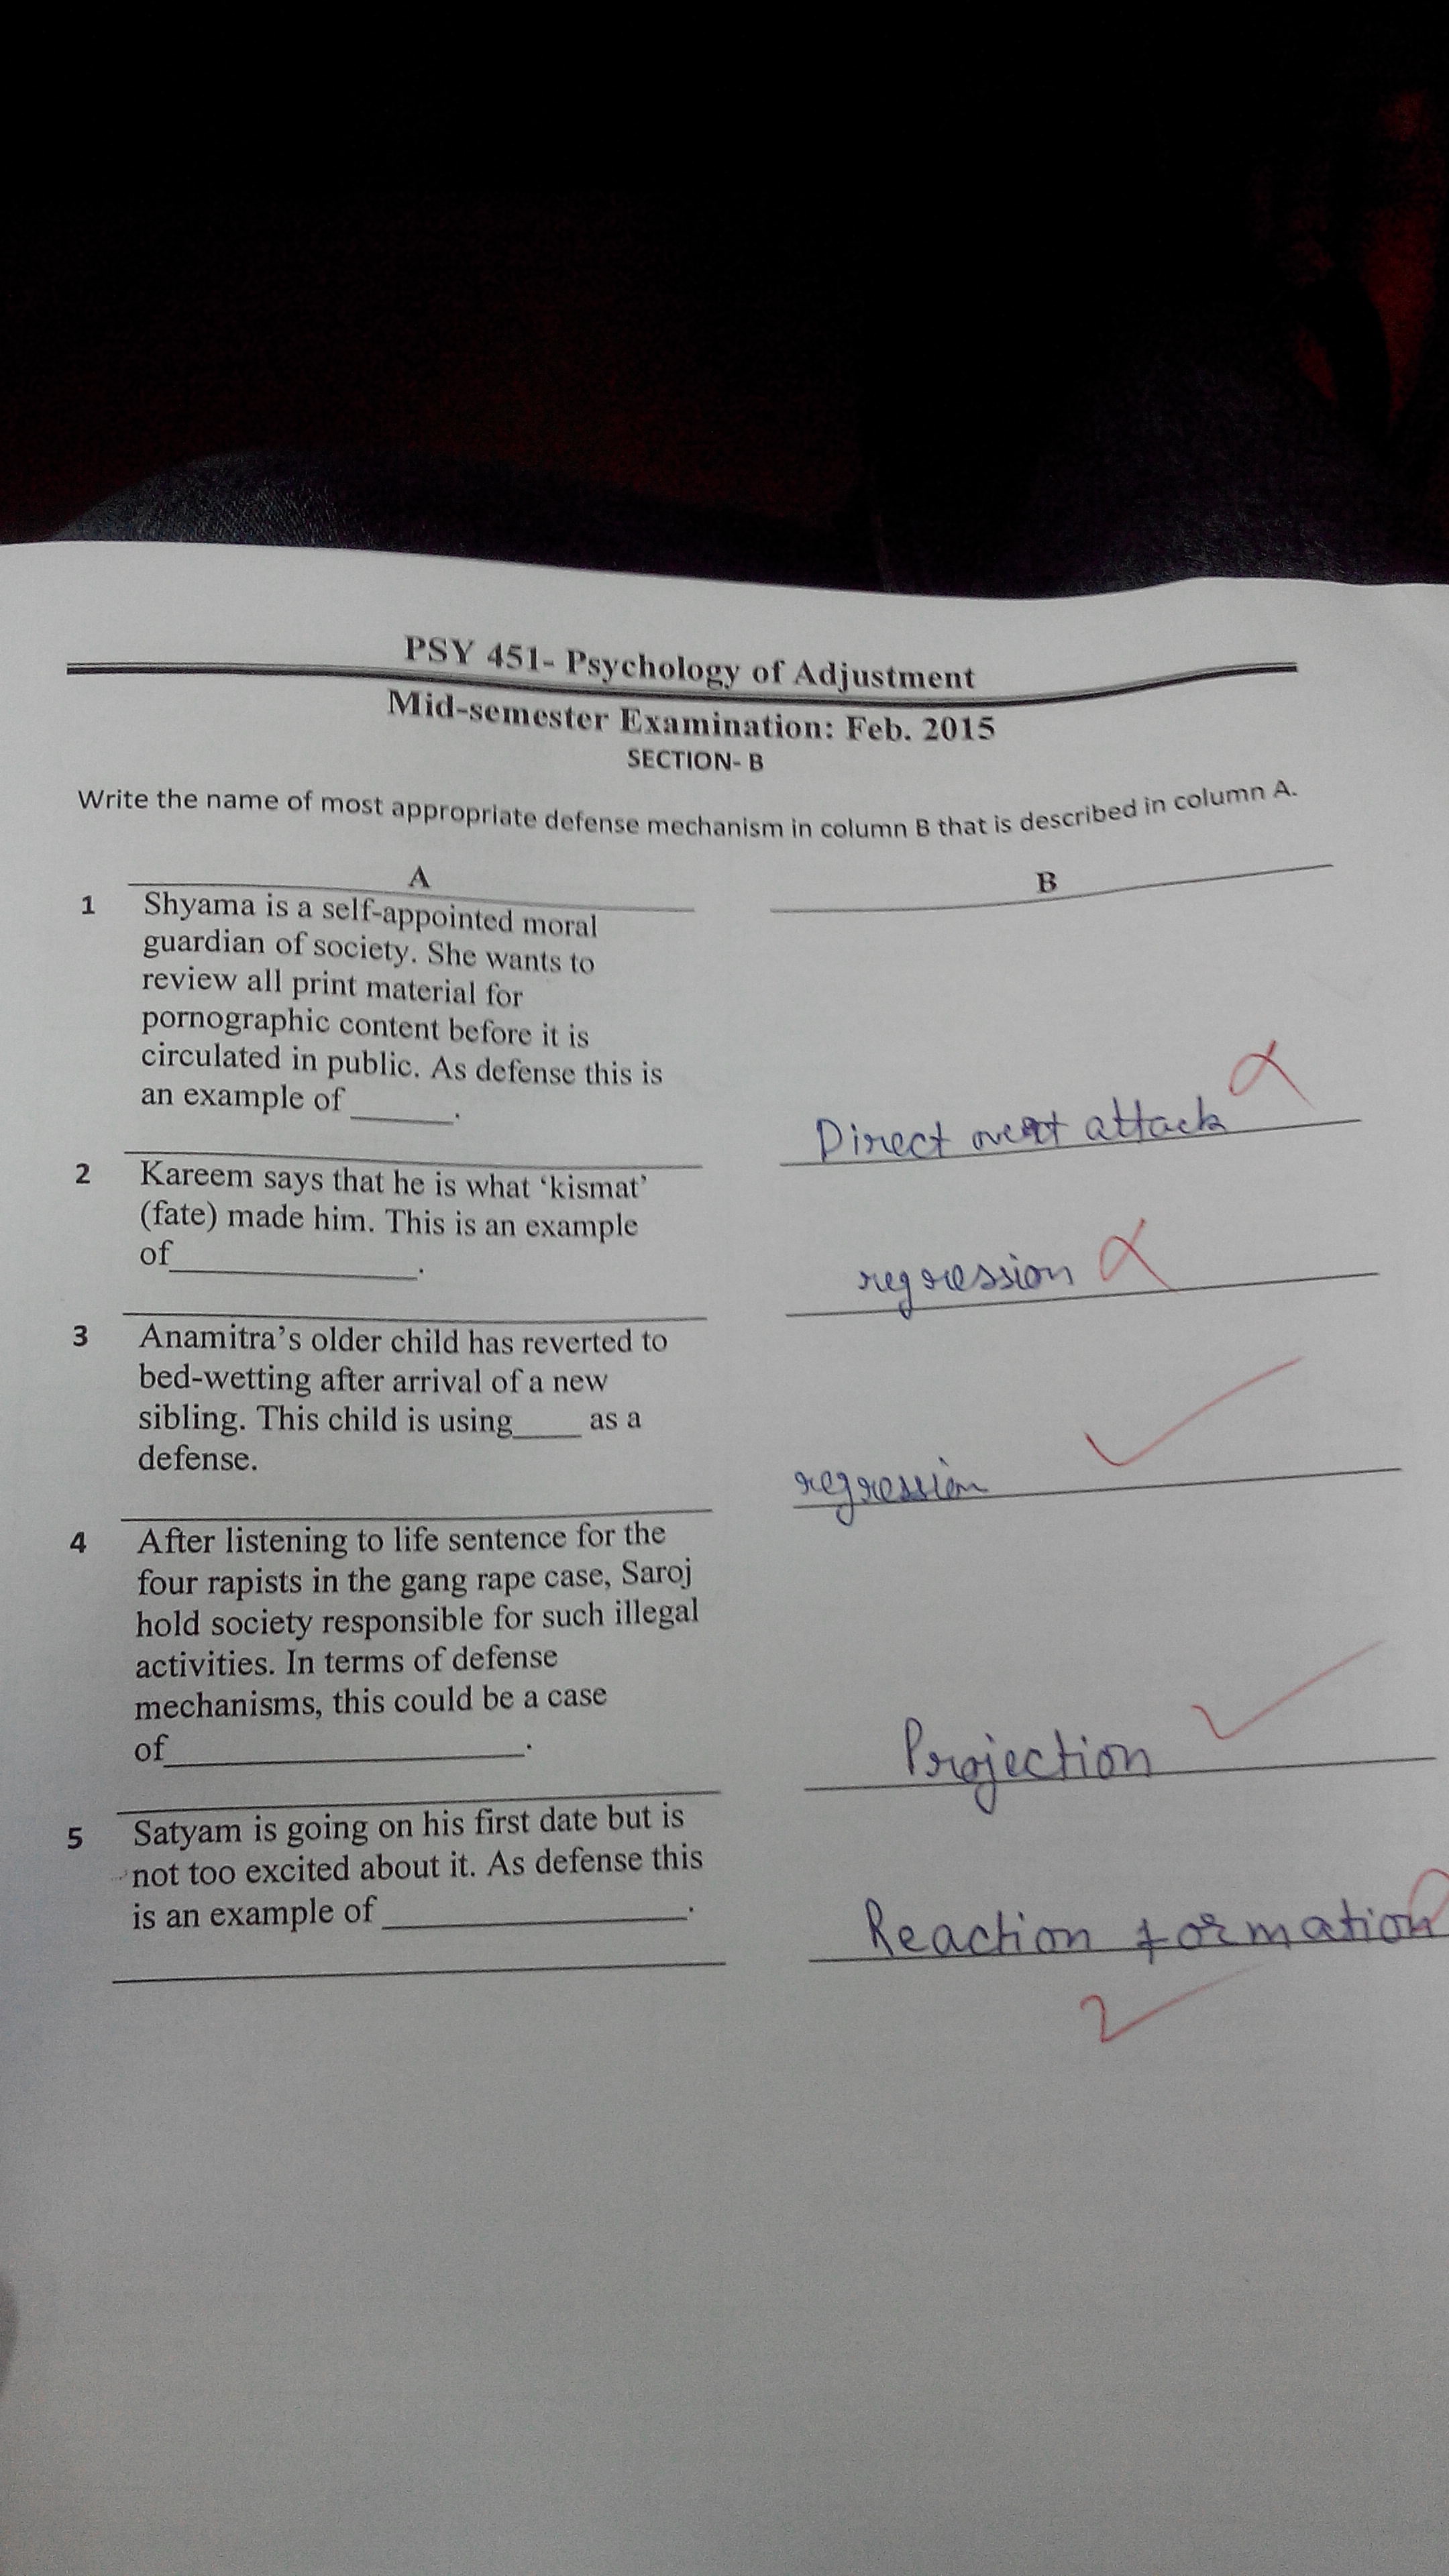 PSY 451- Psychology of Adjustment
Mid-semester Examination: Feb. 2015
SECTION- B
Write the name of most appropriate defense mechanism in column B that is described in column A.
A
B
1 Shyama is a self-appointed moral
guardian of society. She wants to
review all print material for
pornographic content before it is
circulated in public. As defense this is
an example of ______.
Direct overt attack
2 Kareem says that he is what ‘kismat’
(fate) made him. This is an example
of______________.
regression
3 Anamitra’s older child has reverted to
bed-wetting after arrival of a new
sibling. This child is using____ as a
defense.
regression
4 After listening to life sentence for the
four rapists in the gang rape case, Saroj
hold society responsible for such illegal
activities. In terms of defense
mechanisms, this could be a case
of____________________.
Projection
5 Satyam is going on his first date but is
not too excited about it. As defense this
is an example of _________________.
Reaction formation